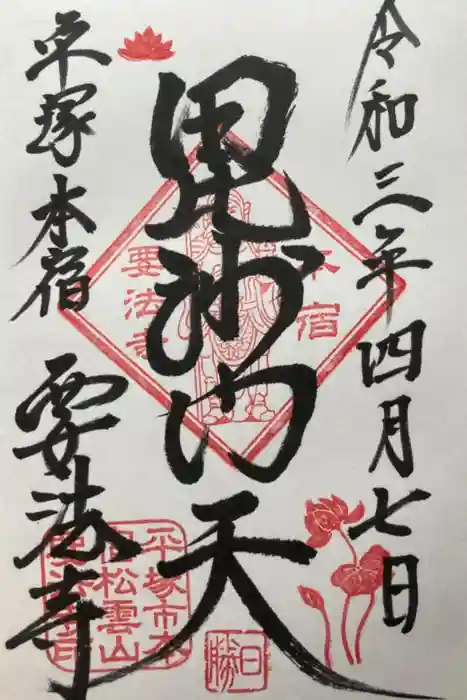 令和三年四月七日
毘沙門天
平塚本宿
要法寺
本宿
要法寺
平塚市本
松雲山
要法寺